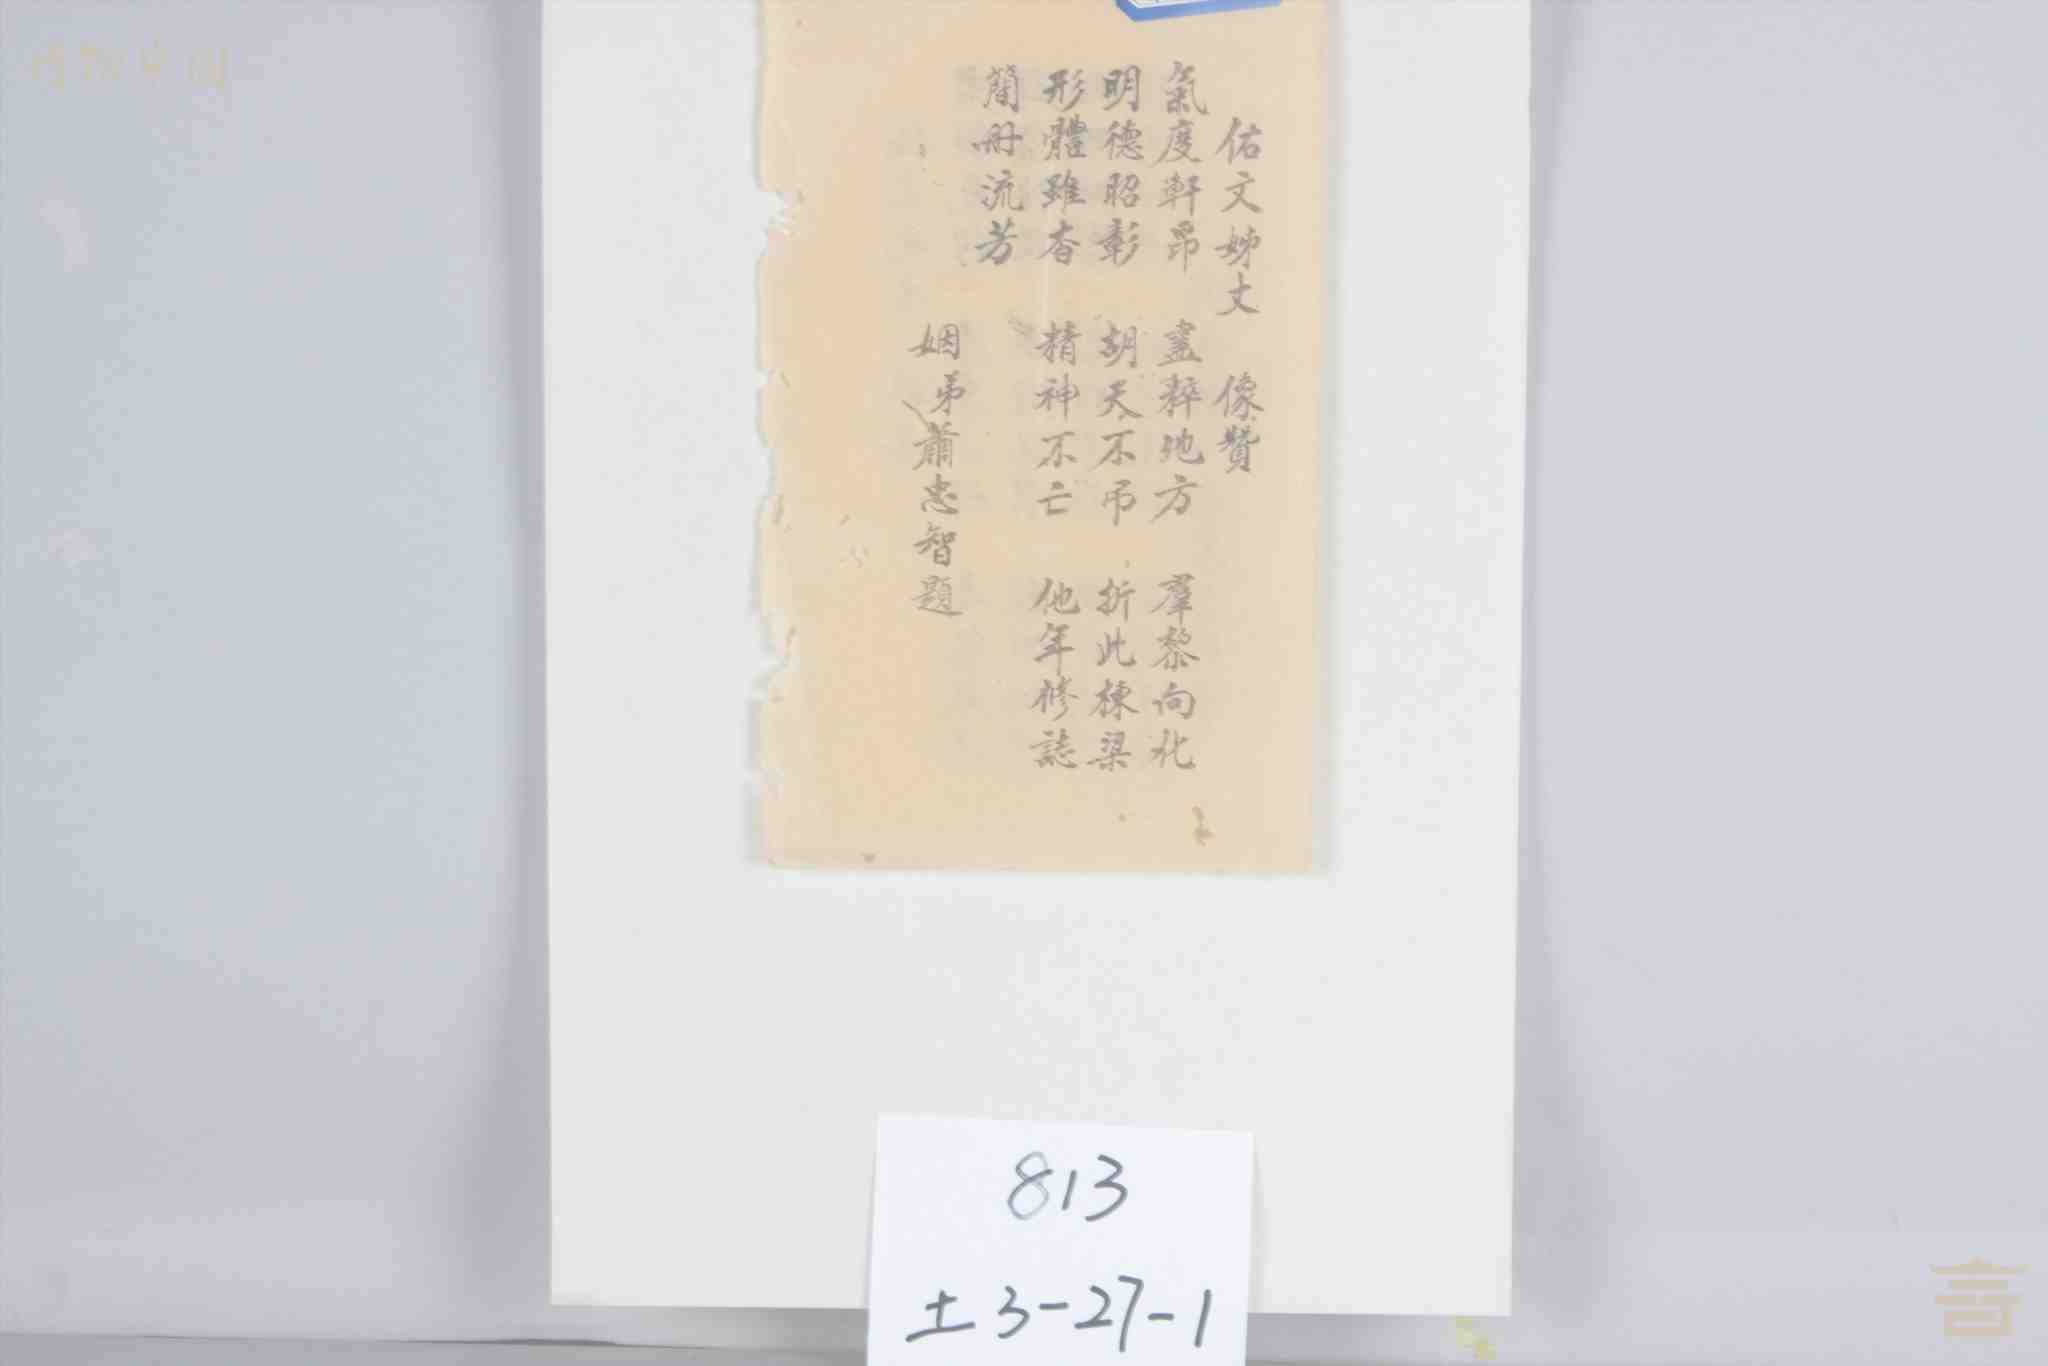 佑文姊丈 像贊
氣度軒昂 盡粹地方 羣黎向化
明德昭彰 胡天不吊 折此棟梁
形體雖杳 精神不亡 他年修誌
簡冊流芳
姻弟蕭忠智題
813
土3-27-1